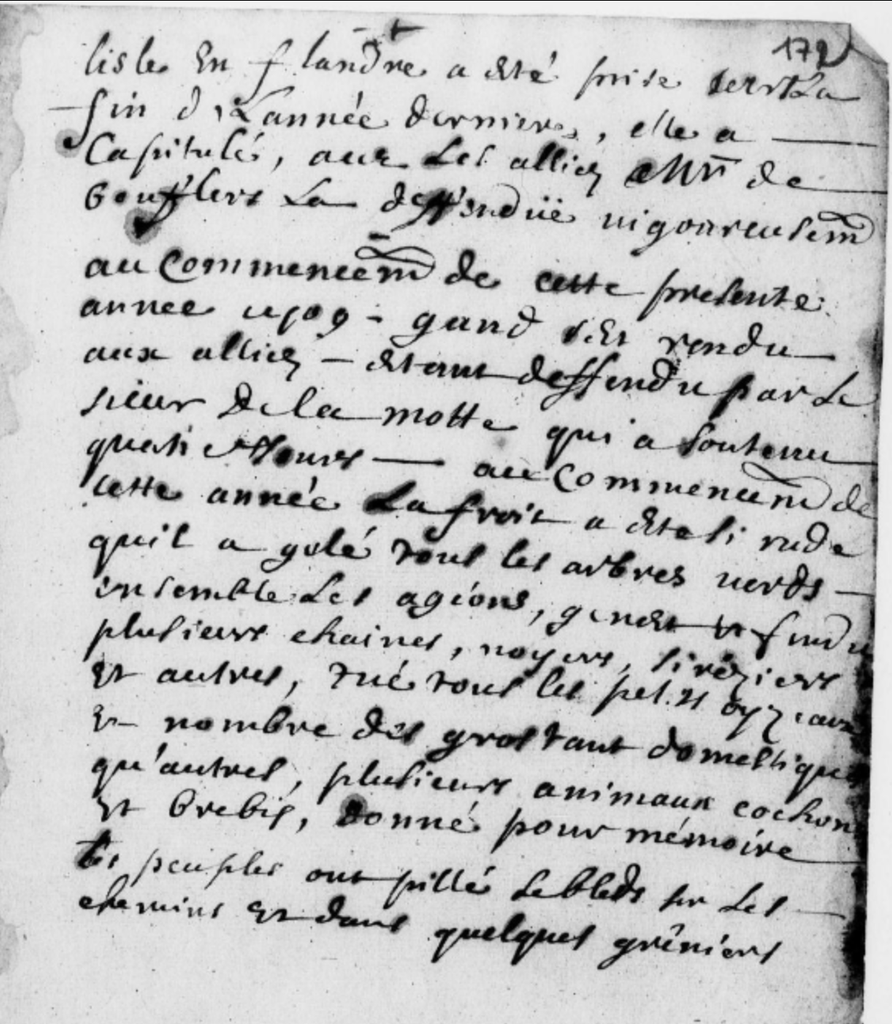 172
lisle En flandre a eté prise sur La
fin de Lannée derniere, elle a
Capitulé, aux Les alliez Mr de
Boufflers La deffenduë vigoureusem
au Commencem de cette presente
annee 1709 - gand s'est rendu
aux alliez - etant deffendu par Le
sieur de la motte qui a soutenu
quatre Jours - au Commencem de
cette année La froit a ete si rude
quil a gelé tous les arbres verds -
ensemble Les agions, genest et fendu
plusieurs chaines, noyers, siréziers
Et autres, tué tous les petis oyziaux
Et nombre des gros tant domestique
qu'autres, plusieurs animaux cochon
Et brebis, donné pour mémoire
les peuples ont pillé Le bleds sur Les
chemins Et dans quelques gréniers